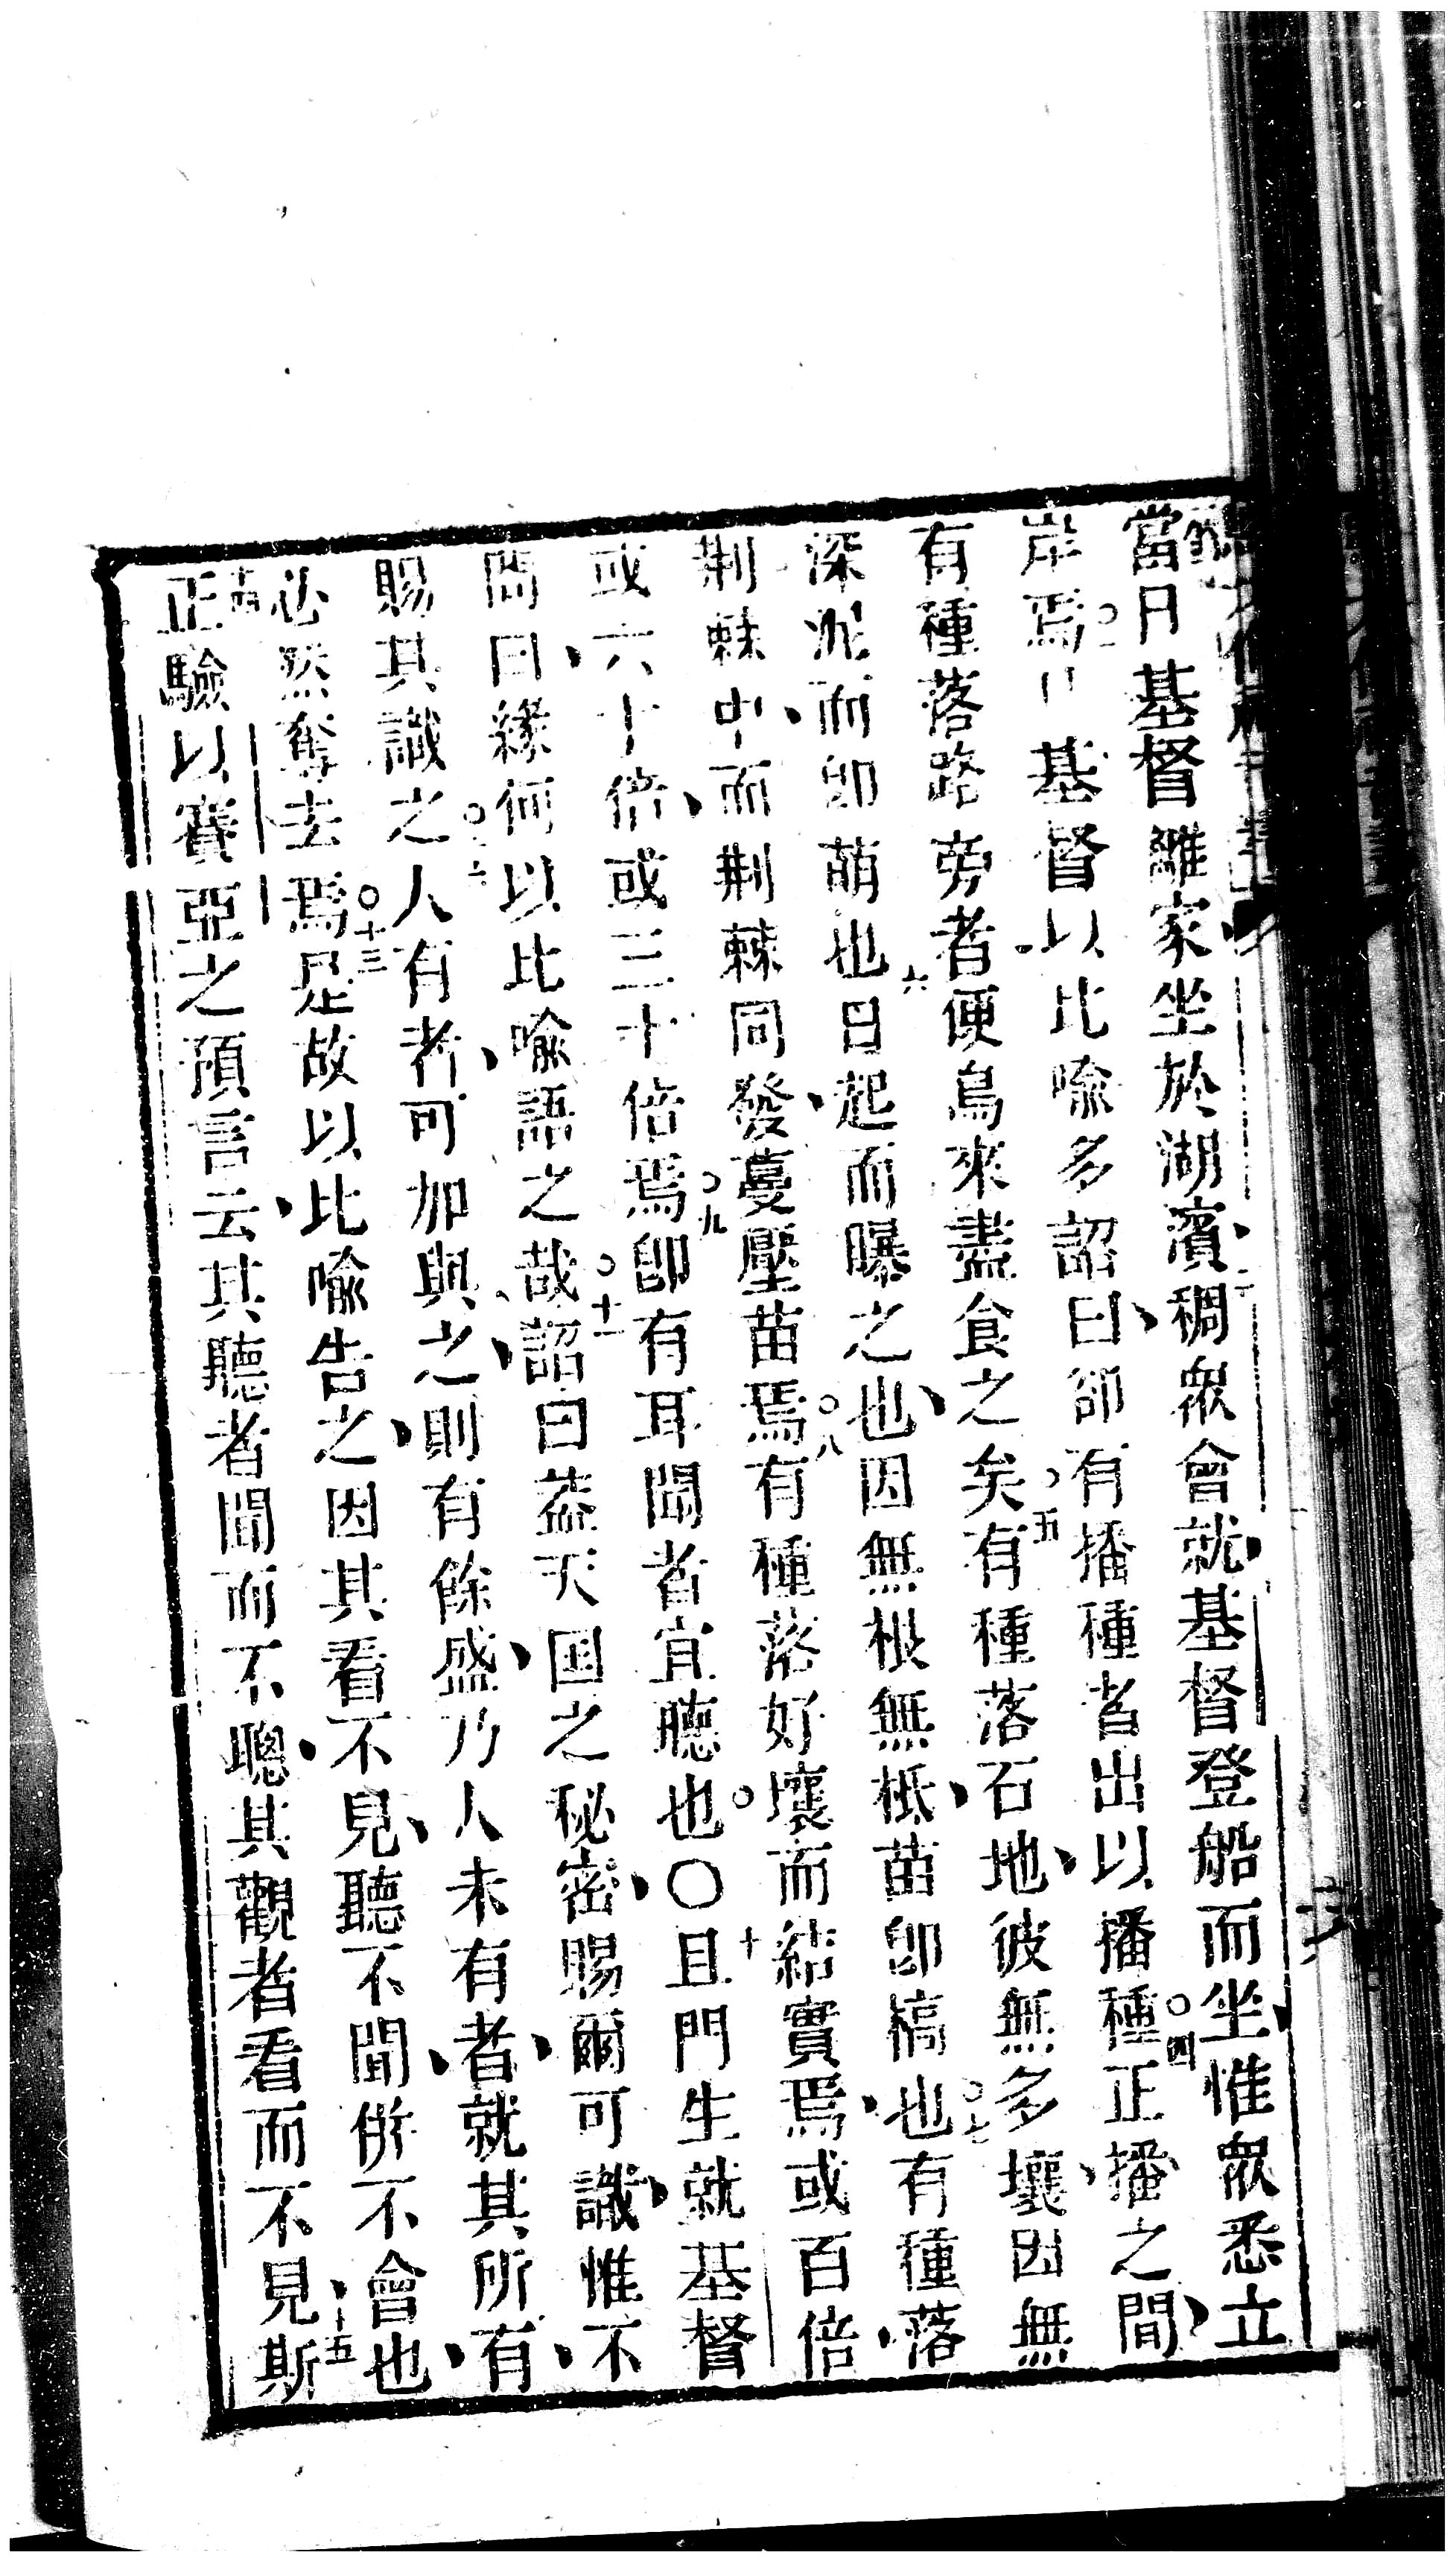 當日基督離家坐於湖濱、二稠衆會就基督登船而坐、惟衆悉立
岸焉○三基督以比喻多詔曰、卻有播種者出以播種○四正播之間、
有種落路旁者便鳥來盡食之矣○五有種落石地、彼無多壤、因無
深泥而即萌也六日起而曝之也、因無根無柢、苗即槁也○七有種落
荆棘中、而荆棘同發、蔓壓苗焉○八有種落好壤而結實焉、或百倍、
或六十倍、或三十倍焉○九即有耳聞者宜聽也○〇十且門生就基督
問曰、緣何以比喻語之哉○十一詔曰葢天国之秘密、賜爾可識、惟不
賜其識之人○十二有者、可加與之、則有餘盛、乃人未有者、就其所有、
必然奪去焉○十三是故以比喻告之、因其看不見、聽不聞、併不會也、
十四正驗以賽亞之預言云、其聽者聞而不聰、其觀者看而不見、十五斯